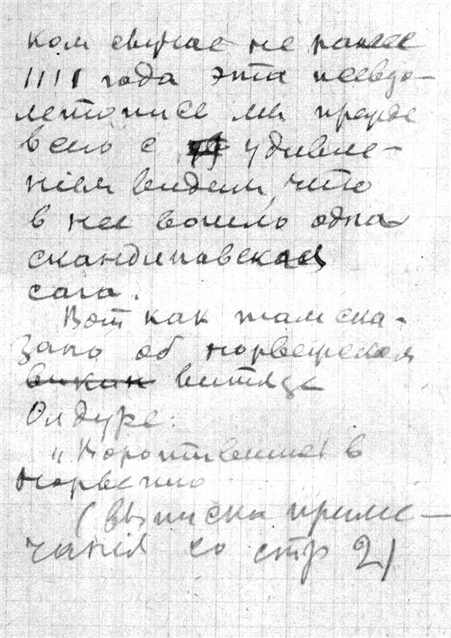 ком случае не ранее
1111 года эта псевдо-
летопись мы прежде
всего с удивле-
ніем видим, что
в нее вошло одна
скандинавская
сага.
Вот как там ска-
зано об норвежском
викин витязе
Олдуре:
"Воротившись в
Норвегию
(выписка приме-
чанія со стр 2)